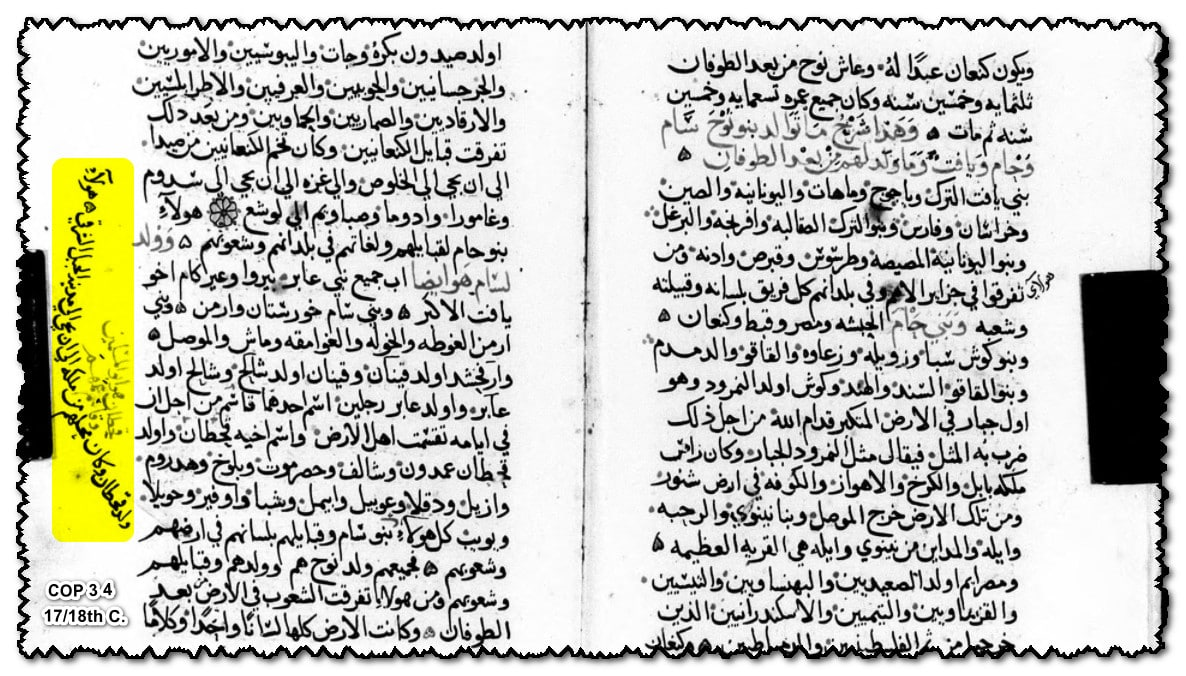 ويكون كنعان عبدًا له وعاش نوح من بعد الطوفان
ثلثمايه وخمسين سنه وكان جميع عمره تسعمايه وخمسين
سنه ثم مات وهذا شرح ما توالد بنو نوح سام
وحام ويافت وما ولد لهم من بعد الطوفان
بني يافت الترك وياجوج وماهات واليونانيه والصين
وخراسان وفارس وبنو الترك الصقالبه وافرنجه والبرغل
وبنوا اليونانية المصيصه وطرسوس وقبرص وادنه ومن
هولاي
تفرقوا في جزاير الامم وفي بلدانهم كل فريق بلسانه وقبيلته
وشعبه وبني حام الحبشه ومصر وقبط وكنعان
وبنو كوش سبا وزويله وزعاوه والفاقو والدمدم
وبنو القاقو السند والهند وكوش اولد النمرود وهو
اول جبار في الارض المتكبر قدام الله من اجل ذلك
ضرب به المثل فيقال مثل النمرود الجبار وكان راس
ملكه بابل والكرخ والاهواز والكوفه في ارض شنور
ومن تلك الارض خرج الموصل وبنا نينوي والرحبه
وايله والمداين من نينوي وايله هي القريه العظيمه
ومصرايم اولد الصعيديين والبهنسا وبين والتنيسيين
والاسكندرانيين الذين
خرجوا من
وكنعان
اولد صيدون بكره وحات واليبوسيين والاموريين
والجرجسانيين والحويين والعرقيين والاطرابلسيين
والارقاديين والصماريين والحماويين ومن بعد ذلك
تفرقت قبايل الكنعانيين وكان تخم الكنعانيين من صيدا
الي ان يجي الي الخلوص والي غزه الي ان يجي الي سدوم
وغامورا وادوما وصباويم الي لوشع هولاء
بنو حام لقبايلهم ولغاتهم في بلدانهم وشعوبهم وولد
لسام هو ايضا اب جميع بني عابر اخو
يافت الاكبر وبني سام خورستان وارمن وبني
ارمن الغوطه والخوله والغوامقه وماش والموصل
وارفخشد اولد قينان وقينان اولد شالح وشالح اولد
عابر واولد عابر رجلين اسم احدهما فاشم من اجل ان
في ايامه تقسمت اهل الارض واسم اخيه قحطان واولد
قحطان عمدون وشالف وحصرموت ويلوخ وهدروم
وازيل ودقلا وعوبيل وايمل وشبا واوفير وحويلا
ويوبب كل هولاء بنو سام وقبايلهم بلسانهم في ارضهم
وشعوبهم فجميعهم ولد نوح هم اوولدهم وقبايلهم
وشعوبهم ومن هولاء تفرقت الشعوب في الارض بعد
الطوفان وكانت الارض كلها لسانًا واحدًا وكلامًا
هولاء
ولد قحطان وكان من مكه الي ان يجي الي مدينه الجبل الشرقي
قحطان هو ابو المسلمين
COP 3 4
17/18th C.